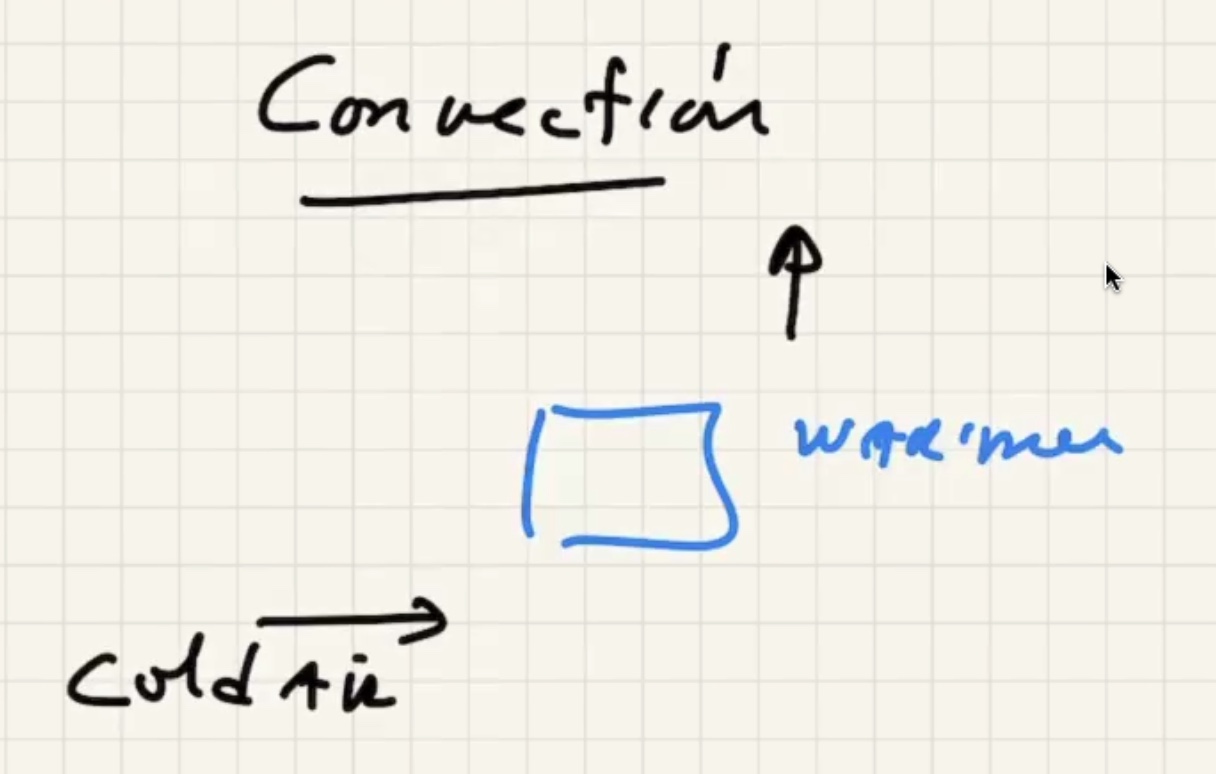 Convection
WARmer
Cold Air